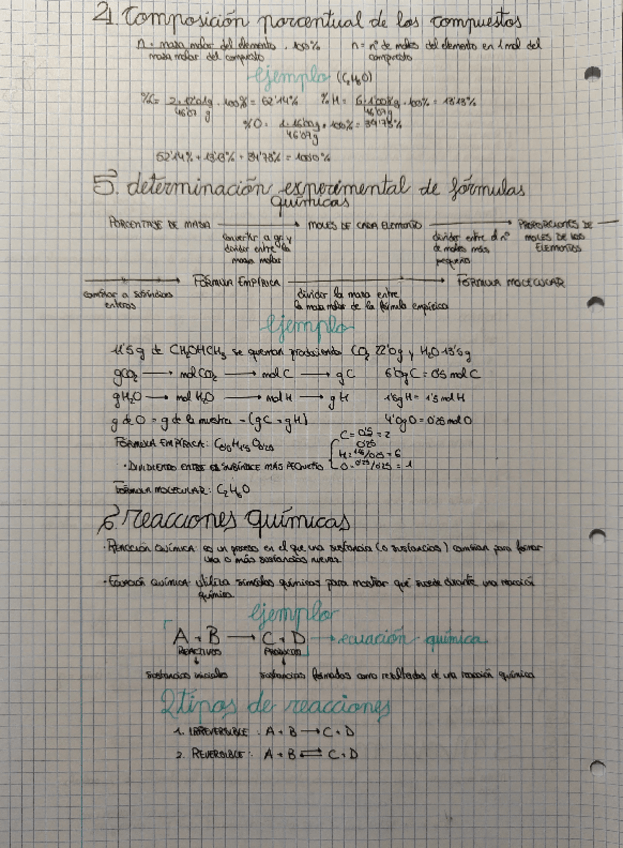 4. Composición porcentual de los compuestos
n · masa molar del elemento · 100%
masa molar del compuesto
n = nº de moles del elemento en 1 mol del compuesto
ejemplo (C₂H₆O)
%C = 2 · 12'01g / 46'07 g · 100% = 52'14% %H = 6 · 1'008g / 46'07g · 100% = 13'13%
%O = 1 · 16'00g / 46'07g · 100% = 34'73%
52'14% + 13'13% + 34'73% = 100%
5. determinación experimental de fórmulas
químicas
PORCENTAJE DE MASA → MOLES DE CADA ELEMENTO → PROPORCIONES DE MOLES DE LOS ELEMENTOS
convertir a gr. y dividir entre la masa molar
dividir entre el nº de moles más pequeño
→ FÓRMULA EMPÍRICA → FÓRMULA MOLECULAR
cambiar a subíndices enteros
dividir la masa entre la masa molar de la fórmula empírica
ejemplo
11'5g de se queman produciendo CO₂ 22'0g y H₂O 13'5g
gCO₂ → mol CO₂ → mol C → gC 6'0g C = 0'5 mol C
gH₂O → mol H₂O → mol H → gH 1'5g H = 1'5 mol H
g de O = g de la muestra - (gC + gH) 4'0g O = 0'25 mol O
FÓRMULA EMPÍRICA: C₀'₅H₁'₅O₀'₂₅
· DIVIDIENDO ENTRE EL SUBÍNDICE MÁS PEQUEÑO
C = 0'5 / 0'25 = 2
H = 1'5/0'25 = 6
O = 0'25/0'25 = 1
FÓRMULA MOLECULAR: C₂H₆O
6. reacciones químicas
· REACCIÓN QUÍMICA: es un proceso en el que una sustancia (o sustancias) cambian para formar
una o más sustancias nuevas.
· ECUACIÓN QUÍMICA: utiliza símbolos químicos para mostrar qué sucede durante una reacción
química
ejemplo
A + B → C + D → ecuación química
REACTIVOS PRODUCTOS
sustancias iniciales sustancias formadas como resultados de una reacción química
2 tipos de reacciones
1. IRREVERSIBLE: A + B → C + D
2. REVERSIBLE: A + B ⇌ C + D